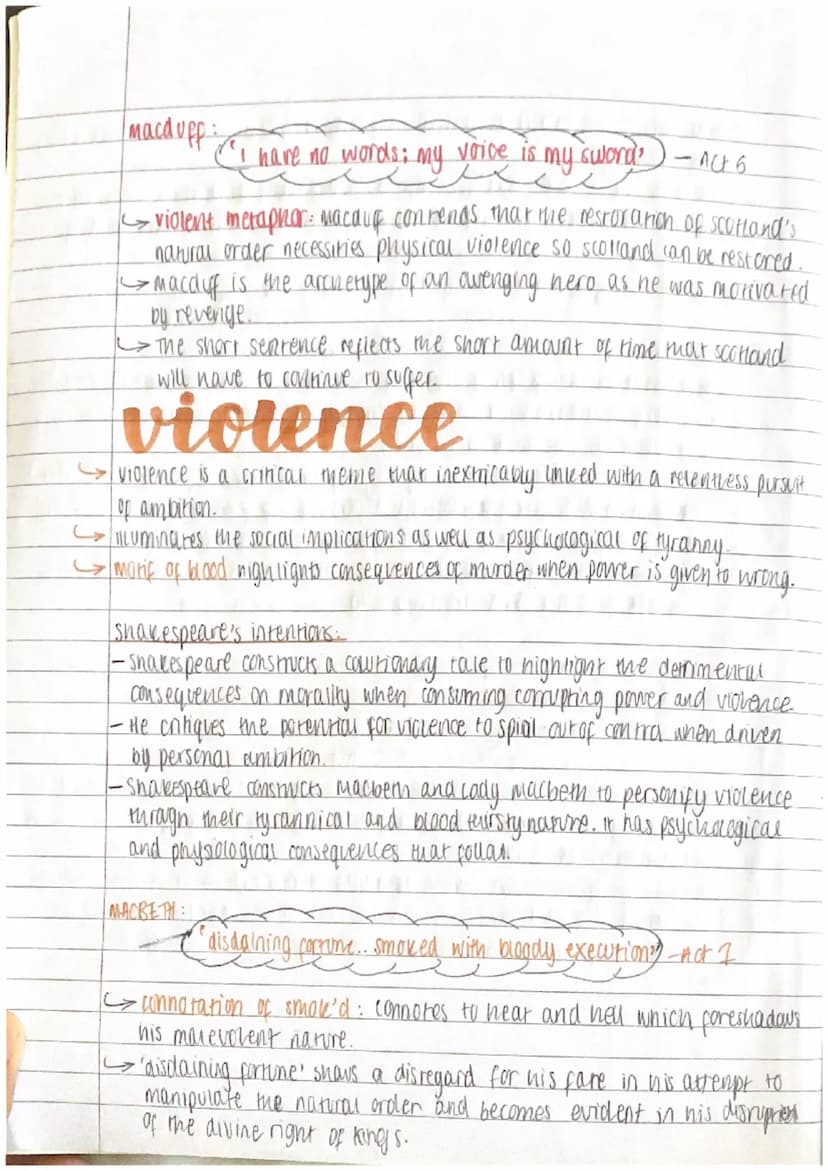 macduff:
'I have no words; my voice is my sword' – Act 5
violent metaphor: macduff contends that the restoration of scotland's
natural order necessities physical violence so scotland can be restored.
macduff is the archetype of an avenging hero as he was motivated
by revenge.
The short sentence reflects the short amount of time that scotland
will have to continue to suffer.
violence
violence is a critical theme that inextricably linked with a relentless pursuit
of ambition.
illuminates the social implications as well as psychological of tyranny.
motif of blood highlights consequences of murder when power is given to wrong.
Shakespeare's intentions:
– Shakespeare constructs a cautionary tale to highlight the detrimental
consequences on morality when consuming corrupting power and violence
– He critiques the potential for violence to spiral out of control when driven
by personal ambition.
– Shakespeare constructs Macbeth and Lady Macbeth to personify violence
through their tyrannical and blood thirsty nature. it has psychological
and physiological consequences that follow.
MACBETH:
'disdaining fortune.. smoked with bloody execution' – Act 1
connotation of smok'd: connotes to heat and hell which foreshadows
his malevolent nature.
'disdaining fortune' shows a disregard for his fate in his attempt to
manipulate the natural order and becomes evident in his disruption
of the divine right of kings.